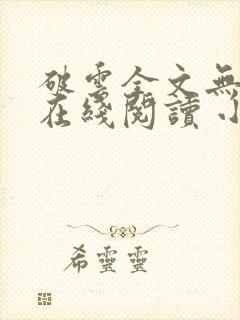 破雲全文無
在綫閱讀 小
希靈靈